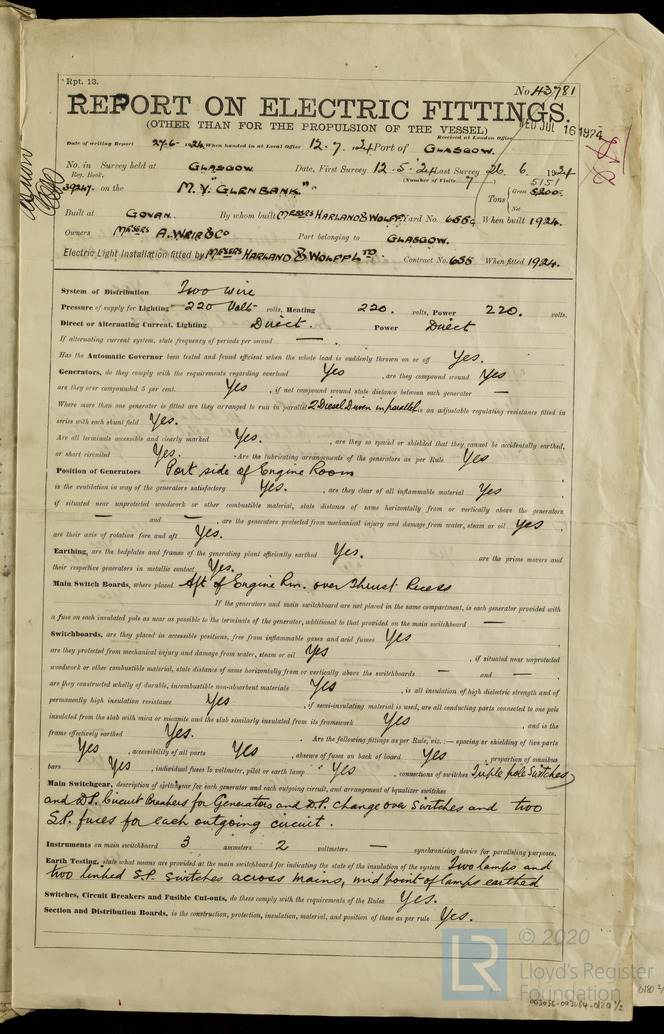 Rpt. 13.
No 43781
REPORT ON ELECTRIC FITTINGS.
(OTHER THAN FOR THE PROPULSION OF THE VESSEL)
Received at London Office WED JUL 16 1924
Date of writing Report 27-6- 1924 When handed in at Local Office 12-7-1924 Port of GLASGOW.
No. in Survey held at GLASGOW Date, First Survey 12-5-'24 Last Survey 26. 6. 1924
Reg. Book. (Number of Visits 7)
39247. on the M.V. "GLENBANK" Tons Gross 5200 5151
Net
Built at GOVAN. By whom built MESSRS HARLAND & WOLFF Yard No. 655G When built 1924.
Owners MESSRS A. WEIR & CO Port belonging to GLASGOW.
Electric Light Installation fitted by MESSRS HARLAND & WOLFF LTD. Contract No. 655 When fitted 1924.
System of Distribution Two wire
Pressure of supply for Lighting 220 Volt volts, Heating 220. volts, Power 220. volts.
Direct or Alternating Current, Lighting Direct. Power Direct
If alternating current system, state frequency of periods per second —
Has the Automatic Governor been tested and found efficient when the whole load is suddenly thrown on or off Yes.
Generators, do they comply with the requirements regarding overload Yes , are they compound wound Yes
are they over compounded 5 per cent. Yes , if not compound wound state distance between each generator —
Where more than one generator is fitted are they arranged to run in parallel 2 Diesel Driven in parallel, is an adjustable regulating resistance fitted in
series with each shunt field Yes.
Are all terminals accessible and clearly marked Yes. , are they so spaced or shielded that they cannot be accidentally earthed,
or short circuited Yes. . Are the lubricating arrangements of the generators as per Rule Yes
Position of Generators Port side of Engine Room
is the ventilation in way of the generators satisfactory Yes. , are they clear of all inflammable material Yes
if situated near unprotected woodwork or other combustible material, state distance of same horizontally from or vertically above the generators
— and — , are the generators protected from mechanical injury and damage from water, steam or oil Yes
are their axis of rotation fore and aft Yes.
Earthing, are the bedplates and frames of the generating plant efficiently earthed Yes. are the prime movers and
their respective generators in metallic contact Yes.
Main Switch Boards, where placed Aft of Engine Rm. over Thrust Recess
If the generators and main switchboard are not placed in the same compartment, is each generator provided with
a fuse on each insulated pole as near as possible to the terminals of the generator, additional to that provided on the main switchboard —
Switchboards, are they placed in accessible positions, free from inflammable gases and acid fumes Yes
are they protected from mechanical injury and damage from water, steam or oil Yes , if situated near unprotected
woodwork or other combustible material, state distance of same horizontally from or vertically above the switchboards — and —
are they constructed wholly of durable, incombustible non-absorbent materials Yes , is all insulation of high dielectric strength and of
permanently high insulation resistance Yes , if semi-insulating material is used, are all conducting parts connected to one pole
insulated from the slab with mica or micanite and the slab similarly insulated from its framework Yes , and is the
frame effectively earthed Yes. . Are the following fittings as per Rule, viz.:— spacing or shielding of live parts
Yes , accessibility of all parts Yes , absence of fuses on back of board Yes , proportion of omnibus
bars Yes , individual fuses to voltmeter, pilot or earth lamp Yes , connections of switches Triple pole Switches
Main Switchgear, description of switchgear for each generator and each outgoing circuit, and arrangement of equalizer switches
and D.P. Circuit Breakers for Generators and D.P. change over Switches and two
S.P. fuses for each outgoing circuit.
Instruments on main switchboard 3 ammeters 2 voltmeters — synchronising device for paralleling purposes.
Earth Testing, state what means are provided at the main switchboard for indicating the state of the insulation of the system Two lamps and
two linked S.P. switches across mains, mid point of lamps earthed
Switches, Circuit Breakers and Fusible Cut-outs, do these comply with the requirements of the Rules Yes.
Section and Distribution Boards, is the construction, protection, insulation, material, and position of these as per rule Yes.
© 2020
LR
Lloyd's Register
Foundation
003056-003064-0180 1/2